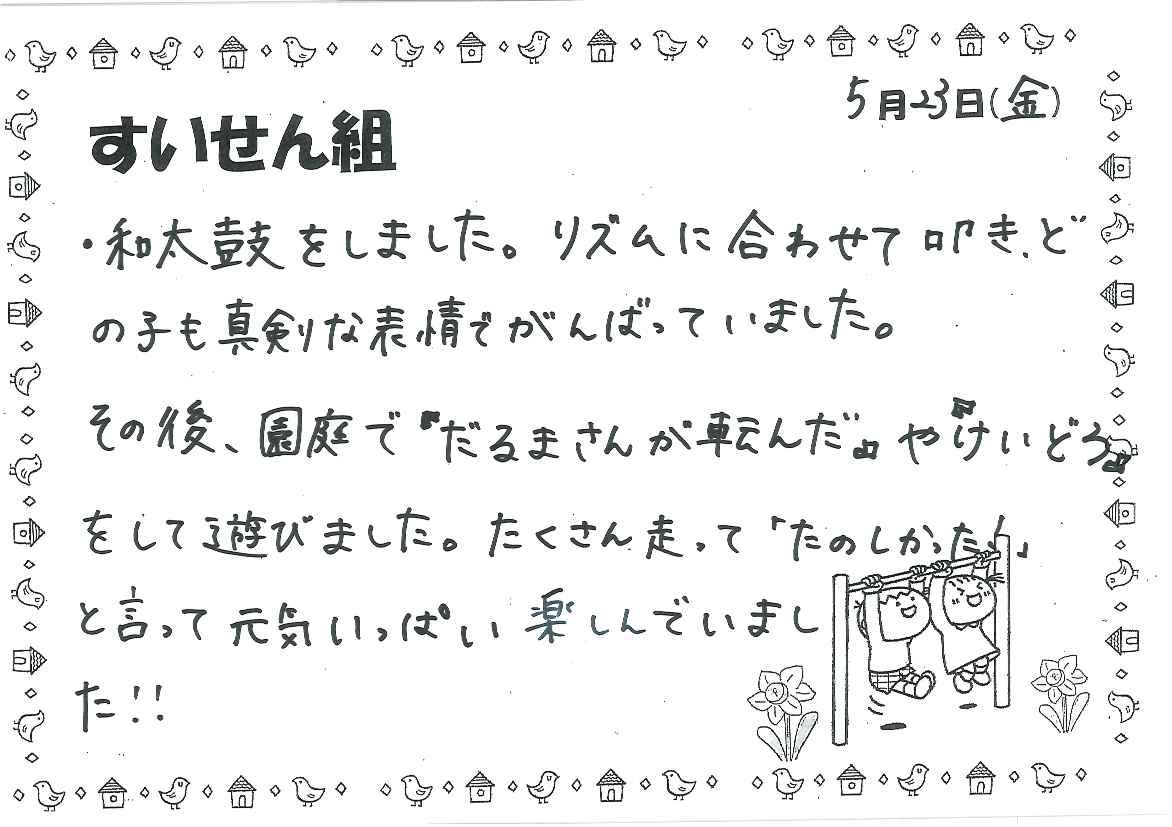 5月23日(金)
すいせん組
・和太鼓をしました。リズムに合わせて叩き、ど
の子も真剣な表情でがんばっていました。
その後、園庭で『だるまさんが転んだ』や『けいどろ』
をして遊びました。たくさん走って「たのしかった!」
と言って元気いっぱい楽しんでいまし
た!!